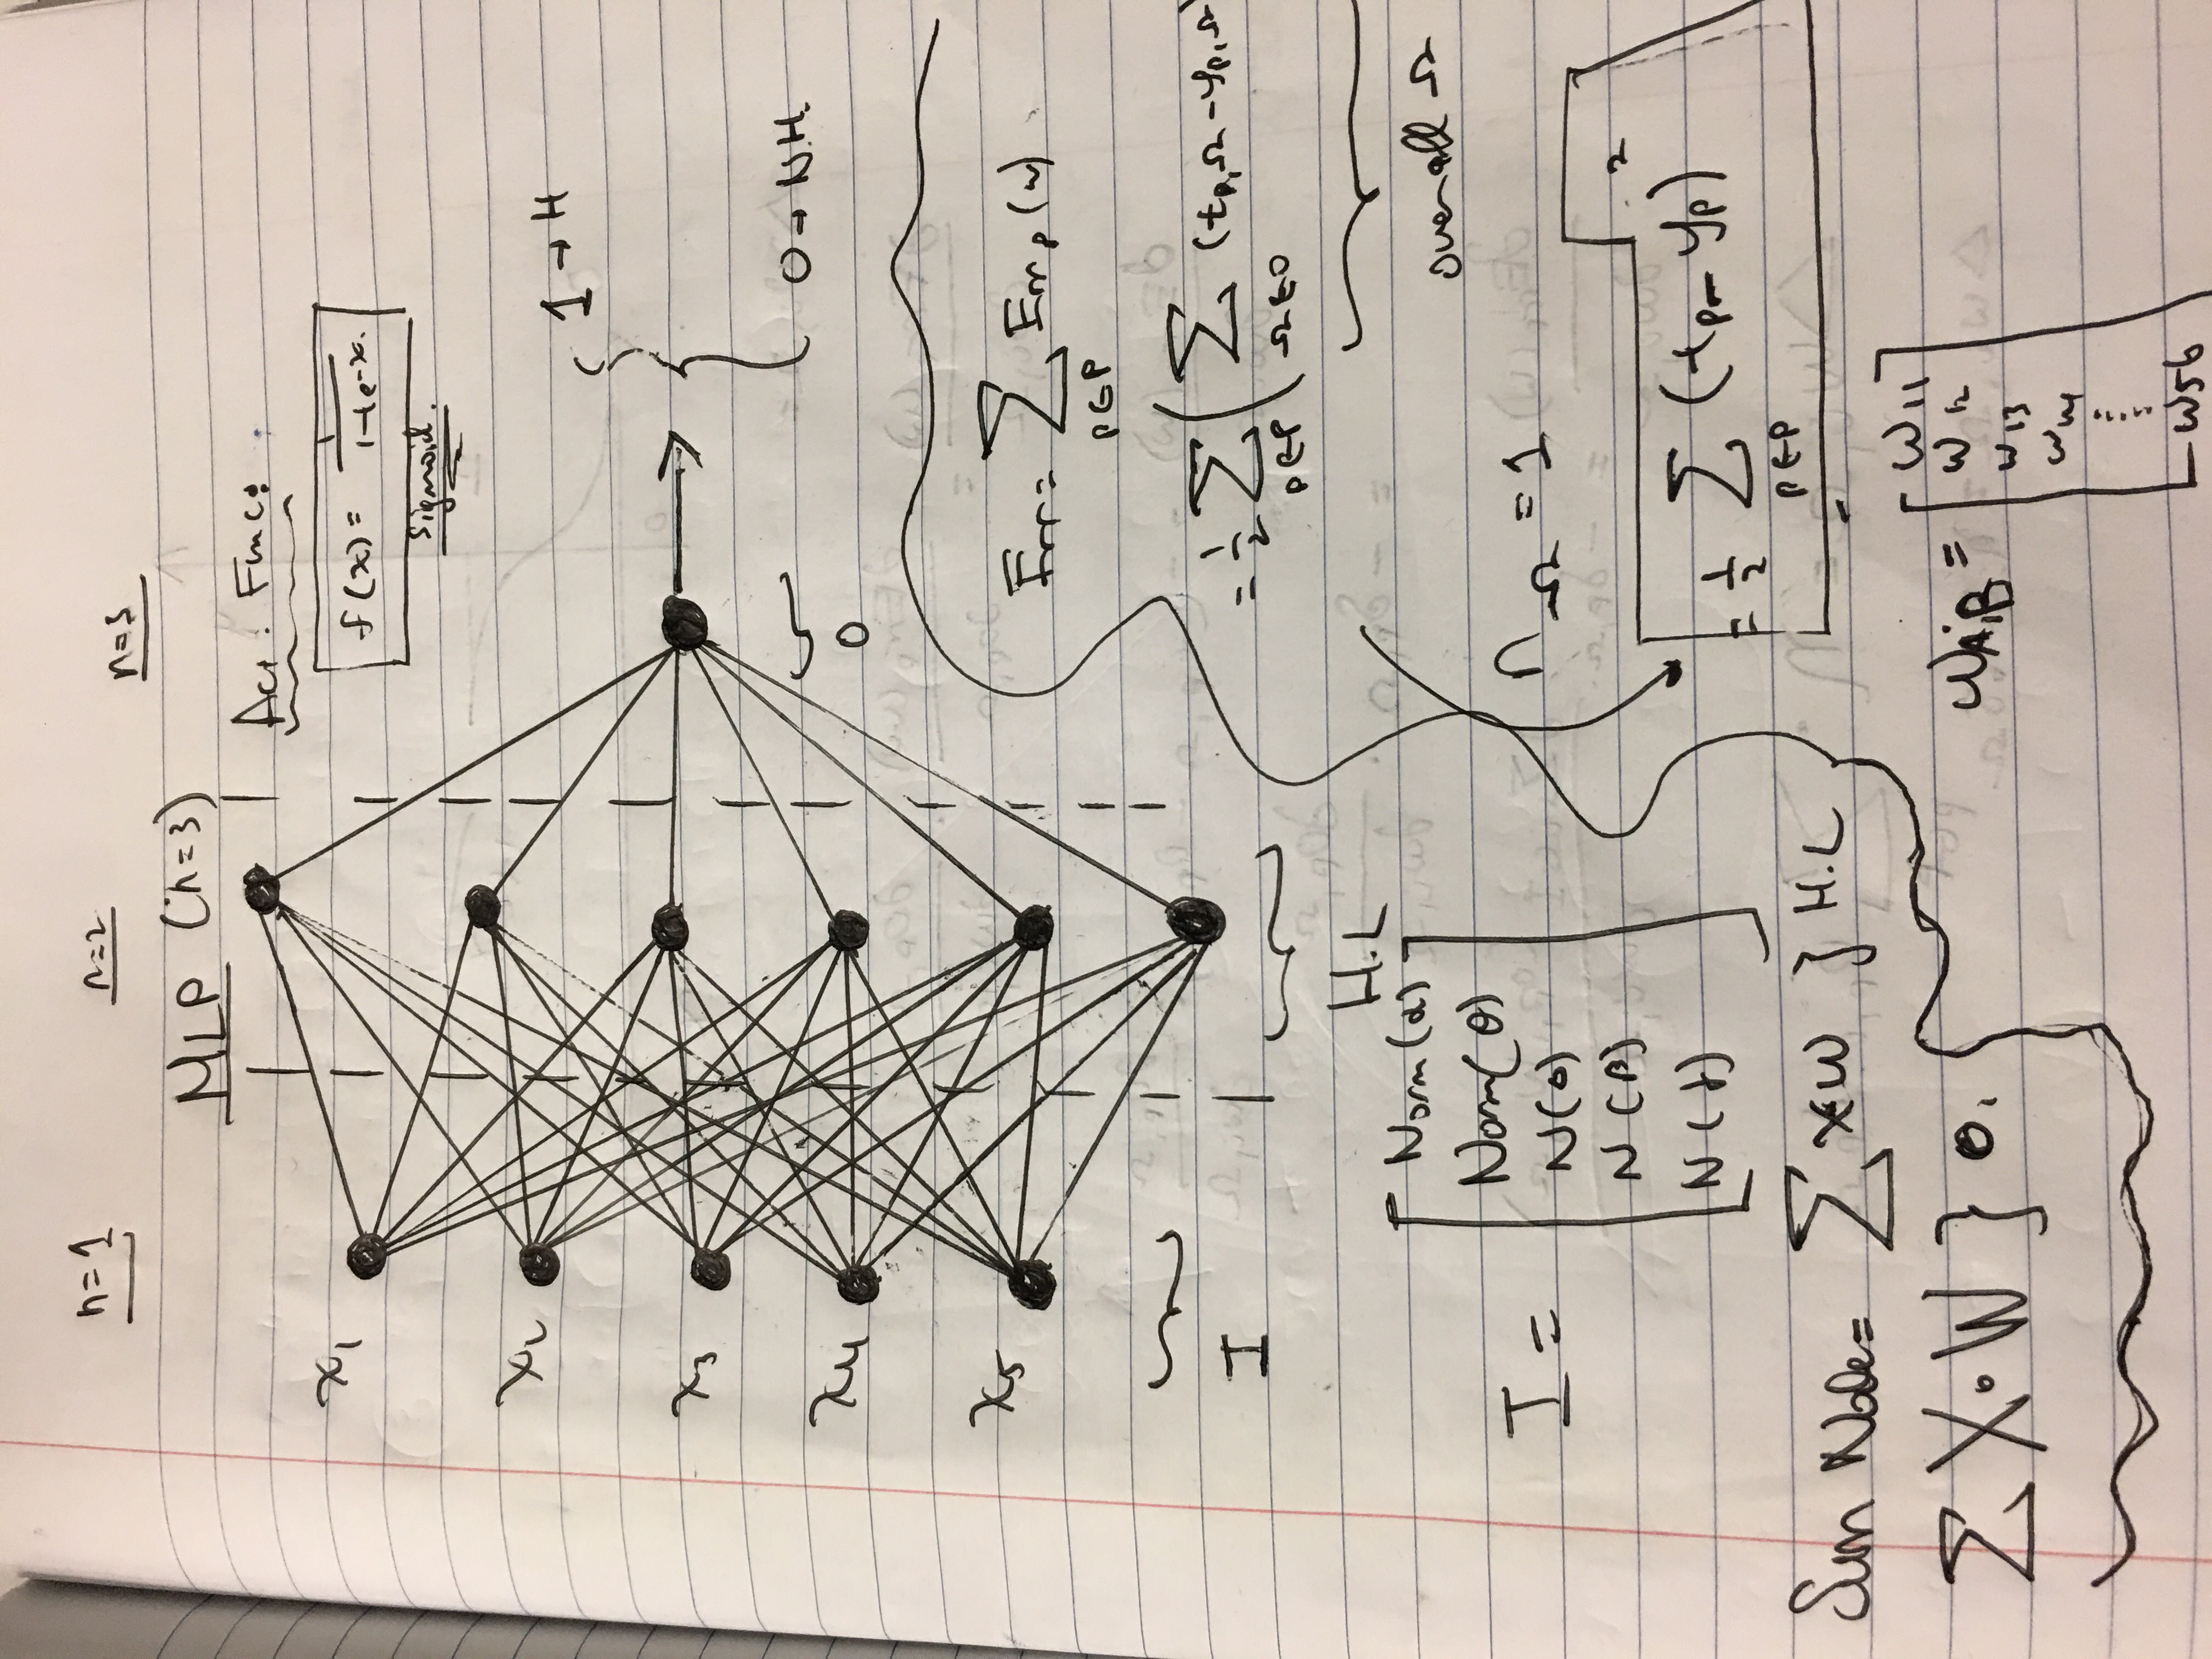 n=1
n=2
n=3
MLP (n=3)
Act. Func:
f(x) = 1/1+e-x.
Sigmoid.
x1
x2
x3
x4
x5
I
H.L
O
1→H
0→N.H.
Err = ∑ p∈P Err p (w)
= 1/2 ∑ p∈P ( ∑ Ω∈O (tp,Ω - yp,Ω)
over all Ω
n Ω = 1
= 1/2 ∑ p∈P (tp - yp)²
I =
Norm(α)
Norm(θ)
N(P)
N(t)
Sum Node = ∑ x.w } H.L
∑ X.W } O.
WA,B =
w11
w12
w13
w14
......
w56